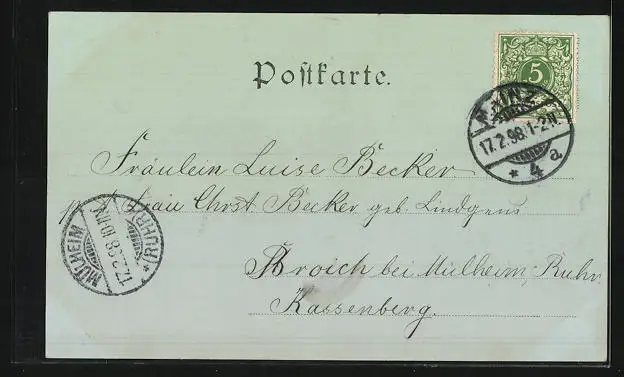 Postkarte.
5
MAINZ
17.2.98.1-2N.
* 4 a
Fräulein Luise Becker
p. A. Frau Chrst. Becker geb. Lindgens
Broich bei Mülheim, Ruhr,
Kassenberg.
MÜLHEIM
17.2.98.10-11N.
(RUHR) *